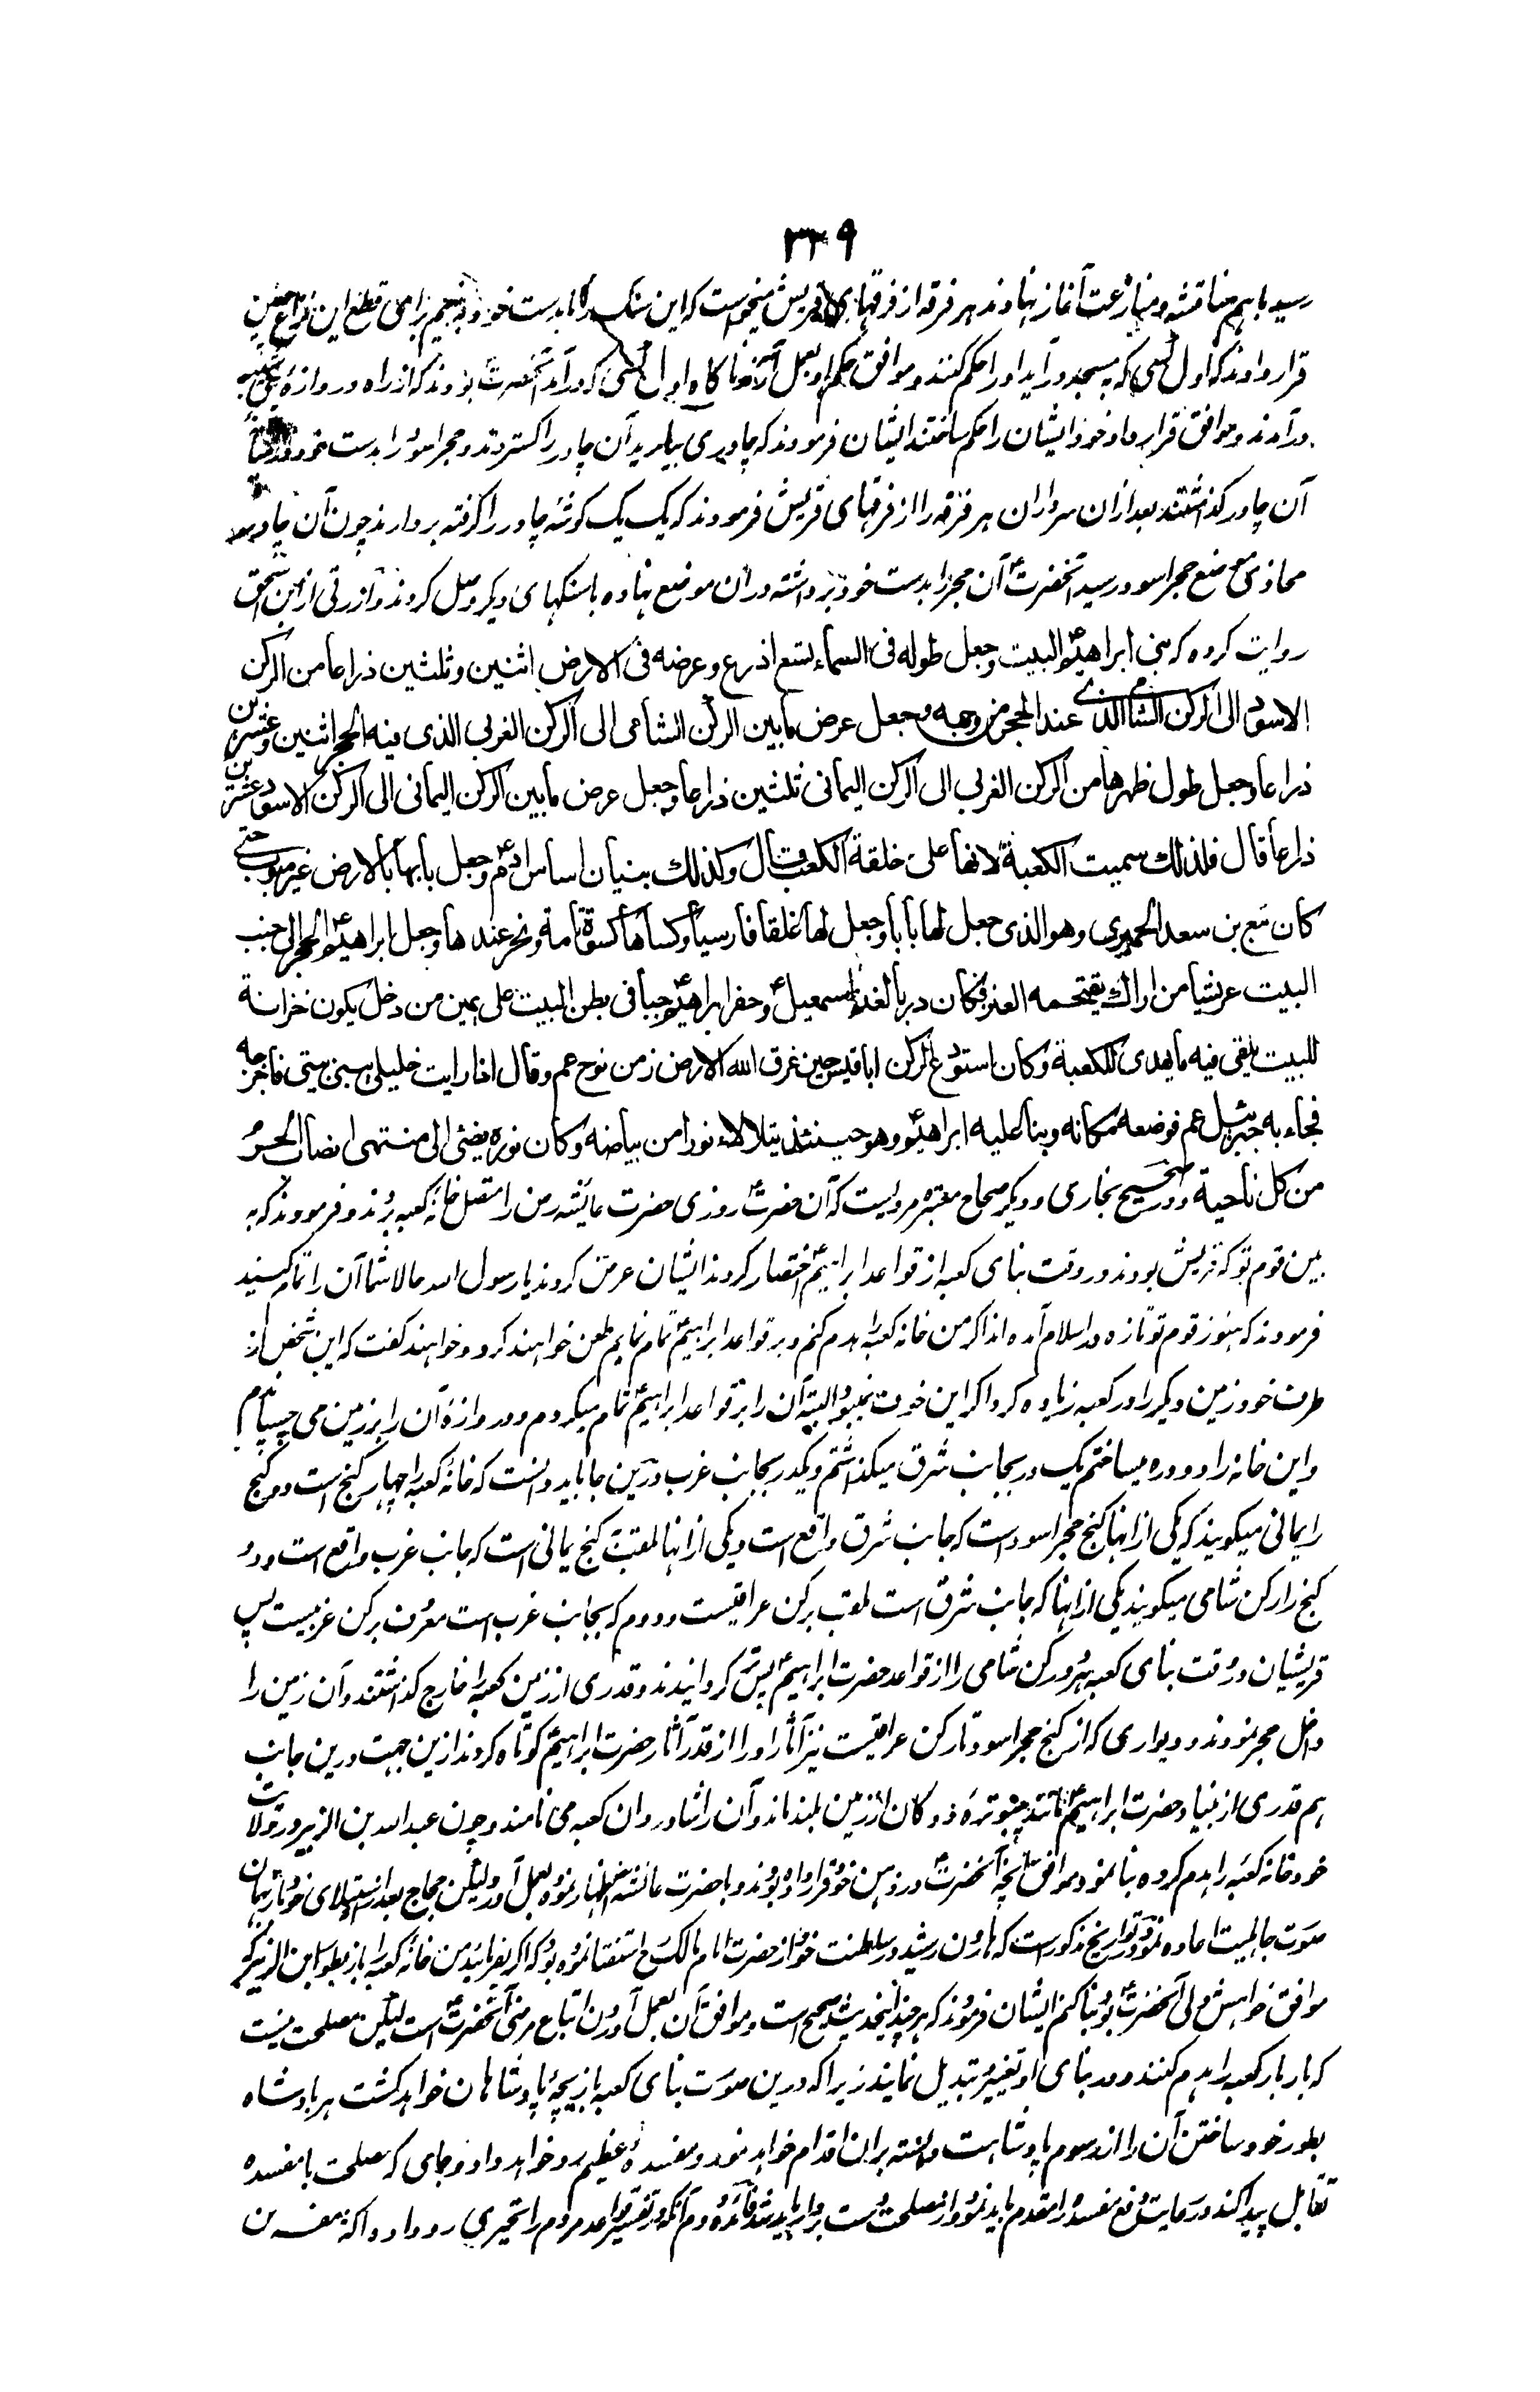 ۳۳۹
رسید باهم مناقشه و منازعت آغاز نهادند هر فرقه از فرقهای قریش میخواست که این سنک را ما بدست خود نهیم برای قطع این نزاع چنین
قرار دادند که اول کسی که به مسجد در آید او را حکم کنند و موافق حکم او بعمل آرند ناکاه اول کسی که درآمد آنحضرت بودند که از راه دروازه بنی شیبه
درآمدند و موافق قرار داد خود ایشان را حکم ساختند ایشان فرمودند که چادری بیارید آن چادر را کستردند و حجر اسود را بدست خود درمیان
آن چادر کذاشتند بعد ازان سرداران هر فرقه را از فرقهای قریش فرمودند که یک یک کوشهٔ چادر را کرفته بردارند چون آن چادر
محاذی موضع حجر اسود رسید آنحضرت آن حجر را بدست خود برداشته دران موضع نهاده با سنکهای دیکر وصل کردند و ازرقی از ابن اسحق
روایت کرده که بنی ابراهیم البیت وجعل طوله فی السماء تسع اذرع و عرضه فی الارض اثنین وثلثین ذراعا من الرکن
الاسود الی الرکن الشامی الذی عند الحجر من وجهه وجعل عرض مابین الرکن الشامی الی الرکن الغربی الذی فیه الحجر اثنین وعشرین
ذراعا وجعل طول ظهرها من الرکن الغربی الی الرکن الیمانی ثلثین ذراعا وجعل عرض مابین الرکن الیمانی الی الرکن الاسود عشرین
ذراعا قال فلذلک سمیت الکعبة لانها علی خلقة الکعب قال وکذلک بنیان اساس آدم وجعل بابها بالارض غیر مبوب حتی
کان تبع بن سعد الحمیری وهو الذی جعل لها بابا وجعل لها غلقا فارسیا وکساها کسوة تامة ونحر عندها وجعل ابراهیم الحجر الی جنب
البیت عریشا من اراک یقتحمه العنز فکان دربا لغنم اسمعیل وحفر ابراهیم جبا فی بطن البیت علی یمین من دخل یکون خزانة
للبیت یلقی فیه مایهدی للکعبة وکان استودع الرکن اباقبیس حین غرق الله الارض زمن نوح عم وقال اذا رایت خلیلی یبنی بیتی فاخرجه
فجاء به جبرئیل عم فوضعه مکانه وبنا علیه ابراهیم وهو حینئذ یتلالاء نورا من بیاضه وکان نوره یضئ الی منتهی انصاب الحرم
من کل ناحیة و در صحیح بخاری و دیکر صحاح معتبره مرویست که آن حضرت روزی حضرت عایشه رض را متصل خانه کعبه بردند و فرمودند که به
بین قوم تو که قریش بودند در وقت بنای کعبه از قواعد ابراهیم اختصار کردند ایشان عرض کردند یا رسول الله حالا شما آن را تمام کنید
فرمودند که هنوز قوم تو تازه در اسلام آمده اند اکر من خانه کعبه را هدم کنم و بر قواعد ابراهیم تمام نمایم طعن خواهند کرد و خواهند کفت که این شخص از
طرف خود زمین دیکر را در کعبه زیاده کرد اکر این خوف نمیبود البته آن را بر قواعد ابراهیم تمام میکردم و دروازهٔ آن را بزمین می چسپانیدم
و این خانه را دو دره میساختم یک در بجانب شرق میکذاشتم و یکدر بجانب غرب درین جا باید دانست که خانهٔ کعبه را چهار کنج است دو کنج
را یمانی میکویند که یکی ازانها کنج حجر اسود است که جانب شرق واقع است و یکی ازانها ملقب بکنج یمانی است که جانب غرب واقع است و دو
کنج را رکن شامی میکویند یکی ازانها که جانب شرق است ملقب برکن عراقیست و دوم که بجانب غرب است معرف برکن غربیست پس
قریشیان در وقت بنای کعبه هر دو رکن شامی را از قواعد حضرت ابراهیم پس تر کردانیدند و قدری از زمین کعبه را خارج کذاشتند و آن زمین را
داخل حجر نمودند و دیواری که از کنج حجر اسود تا رکن عراقیست نیز آثار او را از قدر آثار حضرت ابراهیم کوتاه کردند ازین جهت درین جانب
هم قدری از بنیاد حضرت ابراهیم مانند چبوترهٔ دوکان از زمین بلند ماند و آن را شادروان کعبه می نامند و چون عبد الله بن الزبیر در ولایت
خود خانه کعبه را هدم کرده بنا نمود موافق آنچه آنحضرت در ذهن خود قرار داده بودند و با حضرت عائشه اظهار نموده بعمل آورد لیکن حجاج بعد از استیلای خود باز بهمان
صورت جاهلیت اعاده نمود در تواریخ مذکور است که هارون رشید در سلطنت خود از حضرت امام مالک استفتا نموده بود که اکر بفرمائید من خانه کعبه را باز بطور ابن الزبیر که
موافق خواهش دلی آنحضرت بود بنا کنم ایشان فرمودند که هر چند اینحدیث صحیح است و موافق آن بعمل آوردن اتباع مرضی آنحضرت است لیکن مصلحت نیست
که بار بار کعبه را هدم کنند و در بنای او تغییر و تبدیل نمایند زیرا که درین صورت بنای کعبه بازیچهٔ پادشاهان خواهد کشت هر پادشاه
بطور خود ساختن آن را از رسوم پادشاهت دانسته بران اقدام خواهد نمود و مفسدهٔ عظیم رو خواهد داد و جای که مصلحت با مفسده
تقابل پیدا کند در رعایت رفع مفسده را مقدم باید نمود و از مصلحت دست بردار باید شد فائده دوم آنکه در تفسیر قواعد مردم را تحیری رو داد و اکثر مفسرین